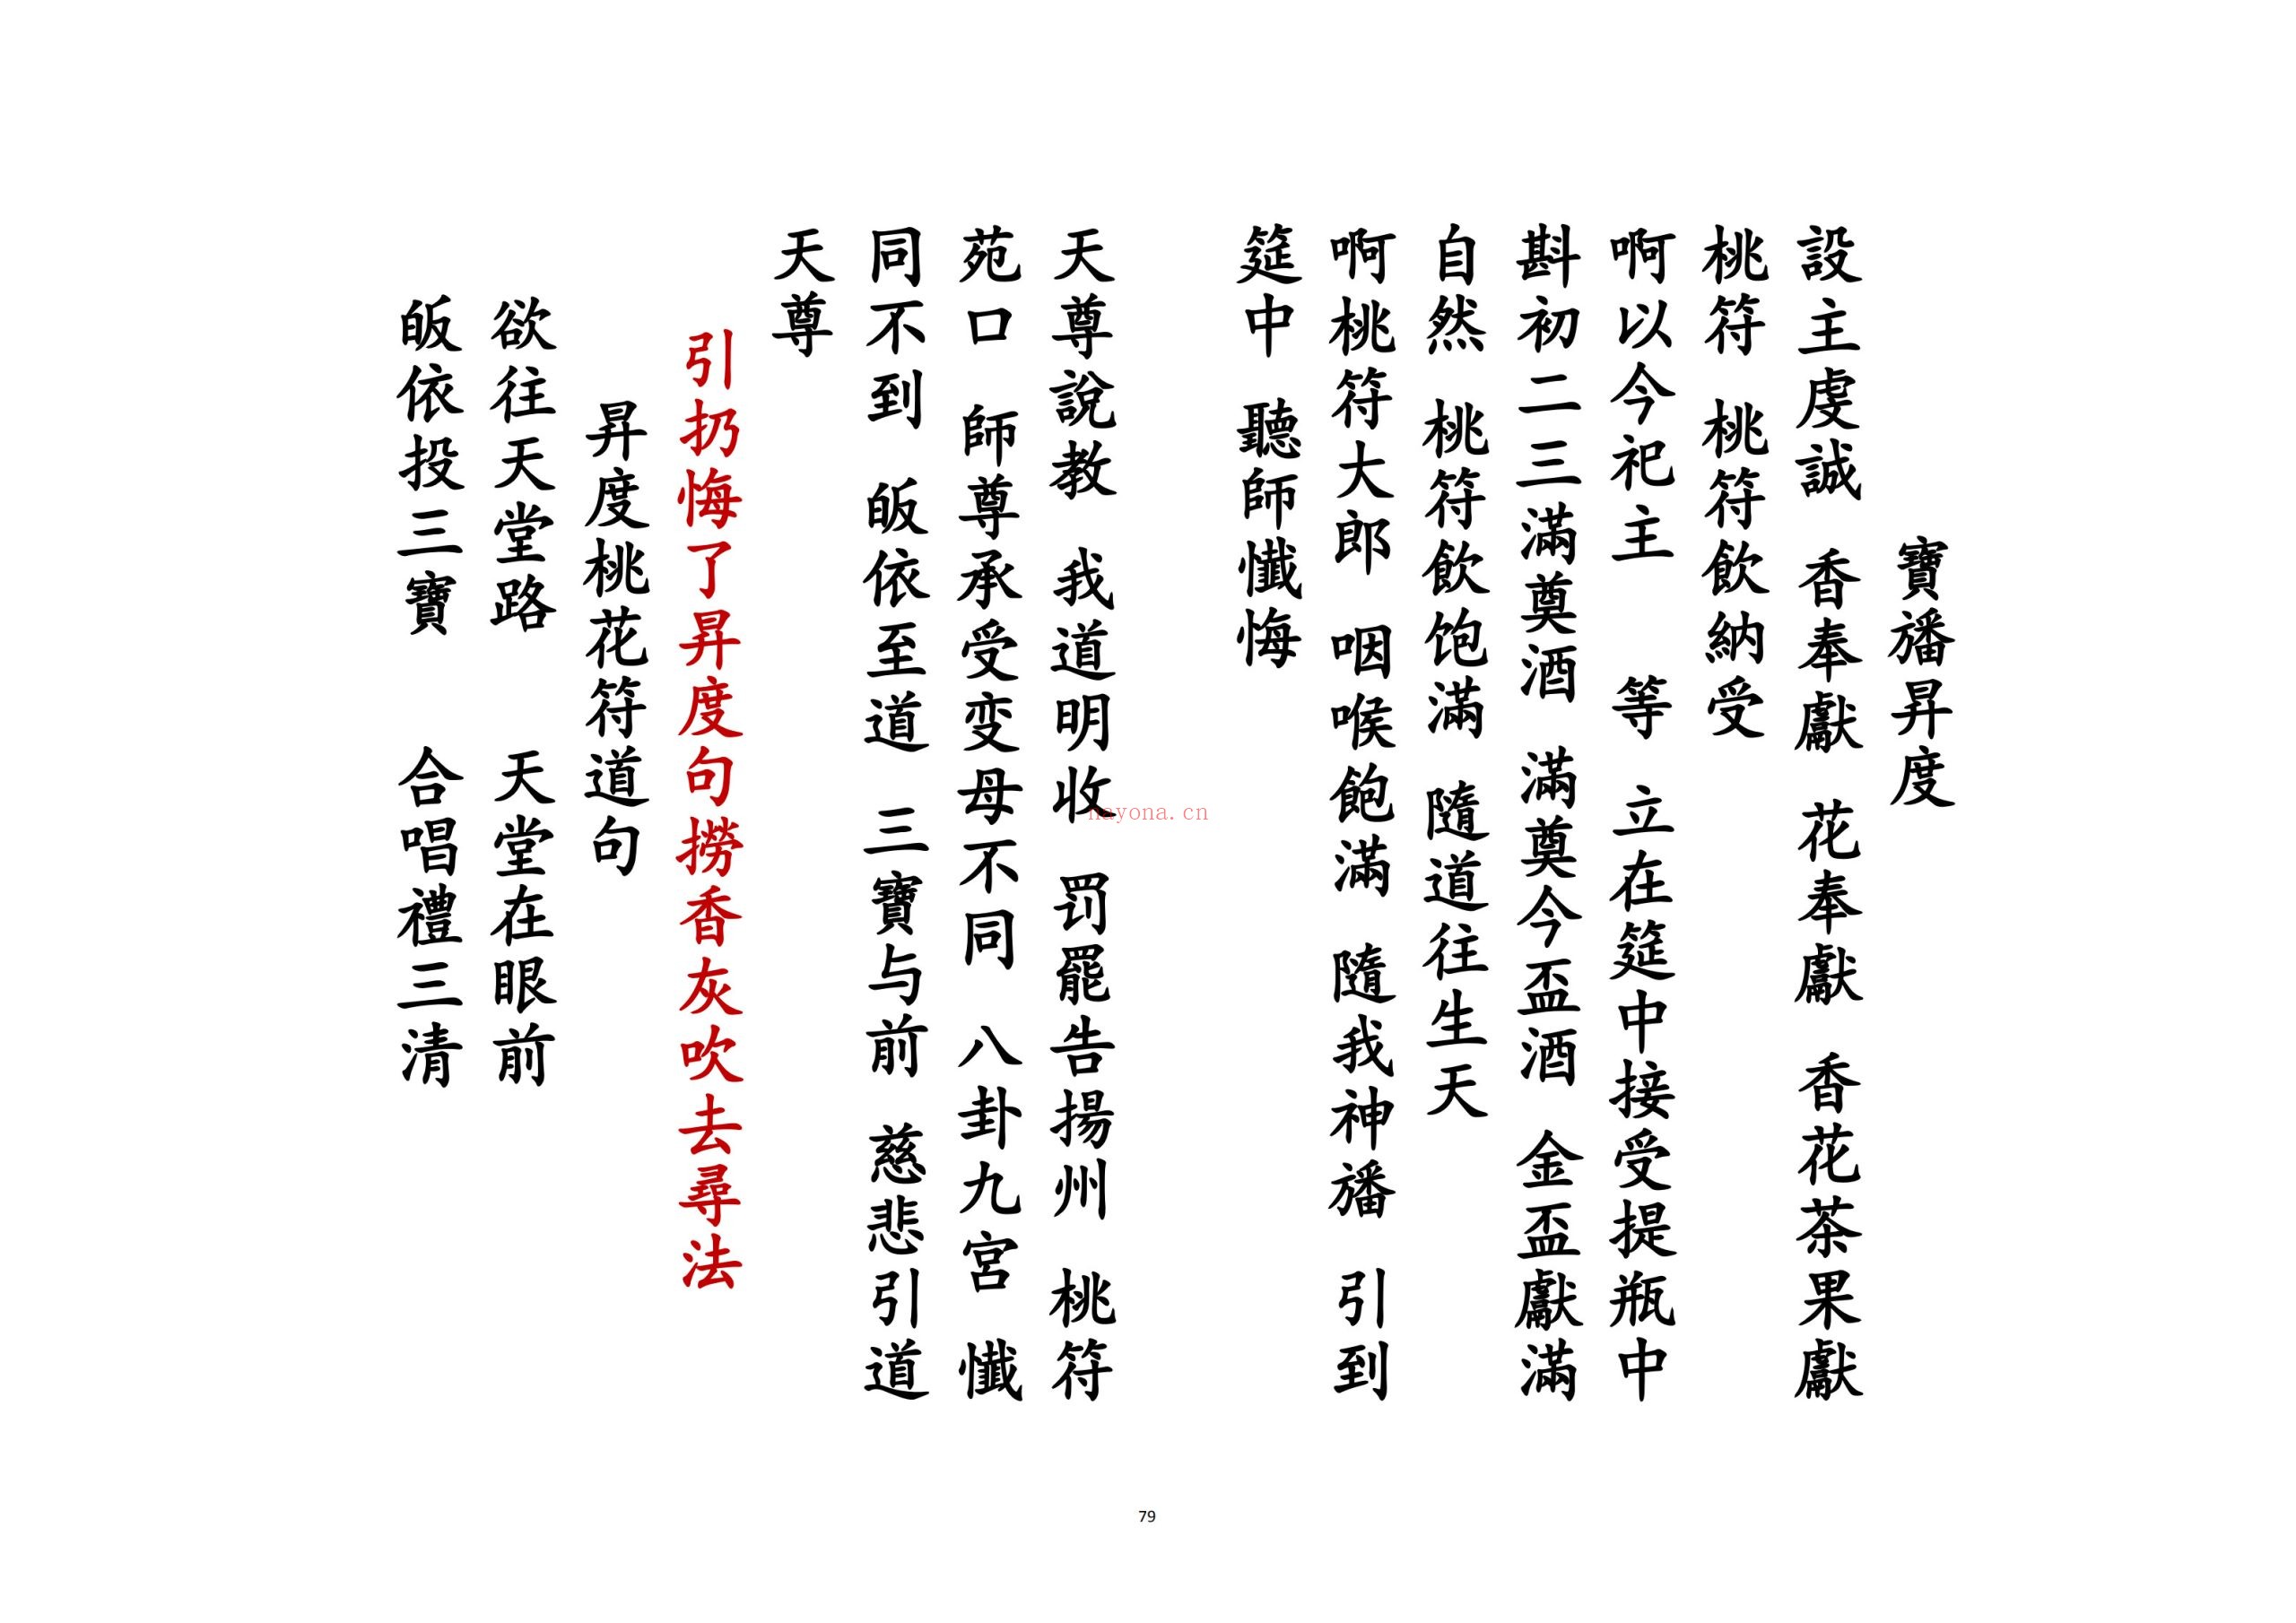 寶旛昇度
設主虔誠 香奉獻 花奉獻 香花茶果獻
桃符 桃符飲納受
啊以今祀主 等 立在筵中接受提瓶中
斟初二三滿奠酒 滿奠今盃酒 金盃獻滿
自然 桃符飲饱滿 隨道往生天
啊桃符大郎 咽喉飽滿 隨我神旛 引到
筵中 聽師懺悔
天尊說教 我道明收 罚罷告揚州 桃符
苑口 師尊承受变母不同 八卦九宮 懺
同不到 皈依至道 三寶与前 慈悲引道
天尊
引扔悔了昇度句撈香灰吹去尋法
昇度桃花符道句
欲往天堂路 天堂在眼前
皈依投三寶 合唱禮三清
nayona.cn
79